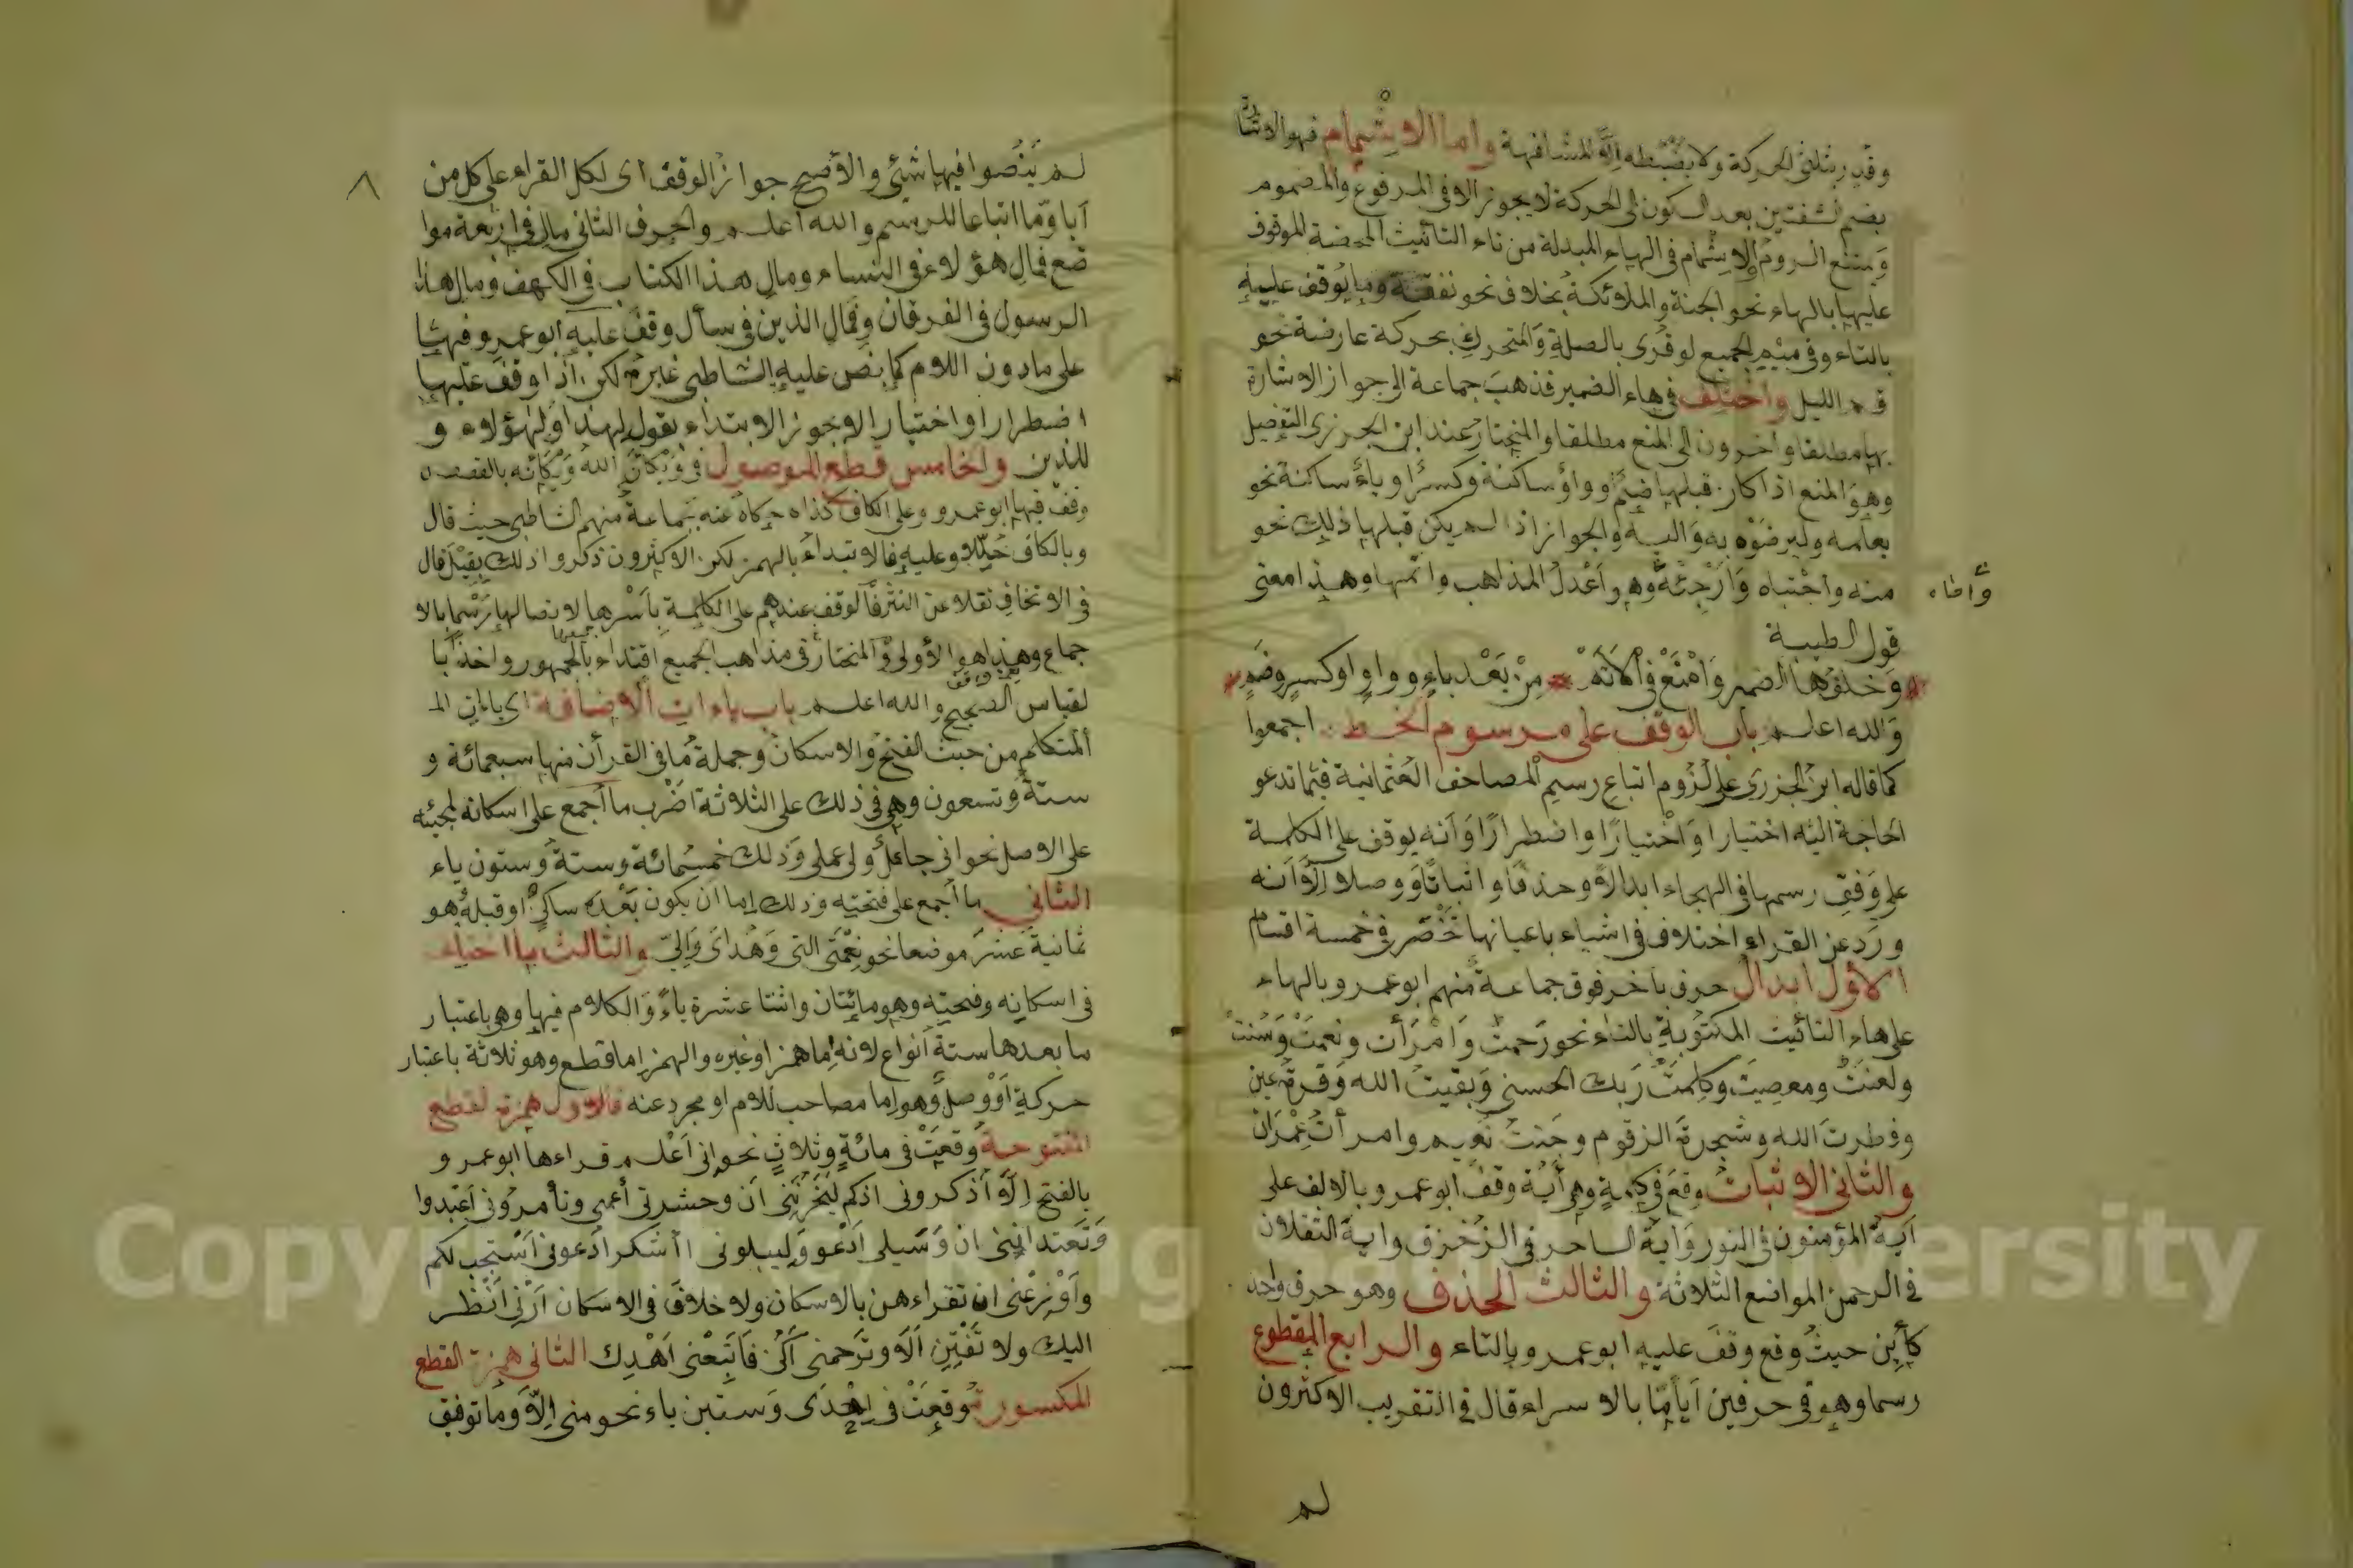 وقدر بثلثي الحركة ولا يضبطه إلا المشافهة واما الاشمام فهو الاشارة
بضم الشفتين بعد السكون الى الحركة لا يجوز الا في المرفوع والمضموم
ويمتنع الروم والاشمام في الهاء المبدلة من تاء التانيث المحضة الموقوف
عليها بالهاء نحو الجنة والملائكة بخلاف نحو نفقة وما يوقف عليه
بالتاء وفي ميم الجميع لو قرئ بالصلة والمتحرك بحركة عارضة نحو
قم الليل واختلف في هاء الضمير فذهب جماعة الى جواز الاشارة
بها مطلقا واخرون الى المنع مطلقا والمختار عند ابن الجزري التفصيل
وهو المنع اذا كان قبلها ضم او واو ساكنة وكسر او ياء ساكنة نحو
يعلمه وليرضوه به واليه والجواز اذا لم يكن قبلها ذلك نحو
منه واجتباه وارجئه وهو اعدل المذاهب واتمها وهذا معنى
قول الطيبة
وخلف ها الضمير وامنع في الاتم من بعد ياء وواو او كسر وضم
والله اعلم باب الوقف على مرسوم الخط اجمعوا
كما قاله ابن الجزري على لزوم اتباع رسم المصاحف العثمانية فيما تدعو
الحاجة اليه اختيارا واختبارا واضطرارا وانه يوقف على الكلمة
على وفق رسمها في الهجاء ابدالا وحذفا واثباتا ووصلا إلا انه
ورد عن القراء اختلاف في اشياء باعيانها تنحصر في خمسة اقسام
الاول ابدال حرف باخر فوق جماعة منهم ابو عمرو بالهاء
على هاء التأنيث المكتوبة بالتاء نحو رحمت وامرأت ونعمت وسنت
ولعنت ومعصيت وكلمت ربك الحسنى وبقيت الله وقرة عين
وفطرت الله وشجرة الزقوم وجنت نعيم وامرأت عمران
والثاني الاثبات وقع في كلمة وهي أية وقف ابو عمرو بالالف على
أية المؤمنون في النور وأية الساحر في الزخرف واية الثقلان
في الرحمن المواضع الثلاثة والثالث الحذف وهو حرف واحد
كأين حيث وقع وقف عليه ابو عمرو بالتاء والرابع المقطوع
رسما وهو في حرفين أيا ما بالاسراء قال في التقريب الاكثرون
لم
لم ينصوا فيها شئ والاصح جواز الوقف اى لكل القراء على كل من
أيا وما اتباعا للرسم والله اعلم والحرف الثاني مال في اربعة موا
ضع فمال هؤلاء في النساء ومال هذا الكتاب في الكهف ومال هذا
الرسول في الفرقان وفمال الذين في سأل وقف عليه ابو عمرو فيها
على ما دون اللام كما نص عليه الشاطبي غيره لكن اذا وقف عليها
اضطرارا او اختبارا لا يجوز الابتداء بقول لهذا او لهؤلاء و
للذين والخامس قطع الموصول في ويكأن الله ويكأنه بالقصص
وقف فيها ابو عمرو وعلى الكاف كذا حكاه عنه جماعة منهم الشاطبي حيث قال
وبالكاف حللا وعليه فالابتداء بالهمز لكن الاكثرون ذكروا ذلك بقيل قال
في الاتحاف نقلا عن النشر فالوقف عندهم على الكلمة باسرها لاتصالها رسما بالا
جماع وهذا هو الاولى والمختار في مذاهب الجميع اقتداء بالجمهور واخذا با
لقياس الصحيح والله اعلم باب ياءات الاضافة اى ياءات الـ
المتكلم من حيث الفتح والاسكان وجملة ما في القرأن منها سبعمائة و
ستة وتسعون وهي في ذلك على الثلاثة اضرب ما أجمع على اسكانه لمجيئه
على الاصل نحو اني جاعل ولى عملى وذلك خمسمائة وستة وستون ياء
الثاني ما أجمع على فتحيته وذلك إما ان يكون بعده ساكن او قبله هو
ثمانية عشر موضعا نحو نعمتي التي وهداى وإلي والثالث ما اختلف
في اسكانه وفتحيته وهو مائتان واثنتا عشرة ياء والكلام فيها وهو باعتبار
ما بعدها ستة أنواع لانه إما همز او غيره والهمز إما قطع وهو ثلاثة باعتبار
حركة او وصل وهو إما مصاحب للام او مجرد عنه فالاول همزة لقطع
المفتوحة وقعت في مائة وثلاث نحو إني اعلم قراءها ابو عمر و
بالفتح إلا أذكروني اذكركم ليحزنني ان وحشرتني أعمى وتأمروني اعبدوا
وتعدانني ان وسبيلي ادعو وليبلوني أأشكر ادعوني أستجب لكم
وأوزعني ان تقراءهن بالاسكان ولا خلاف في الاسكان أرني أنظر
اليك ولا تفتني ألا وترحمني أكن فاتبعني اهدك الثاني همزة القطع
المكسورة وقعت في إحدى وستين ياء نحو مني إلا وما توفيق